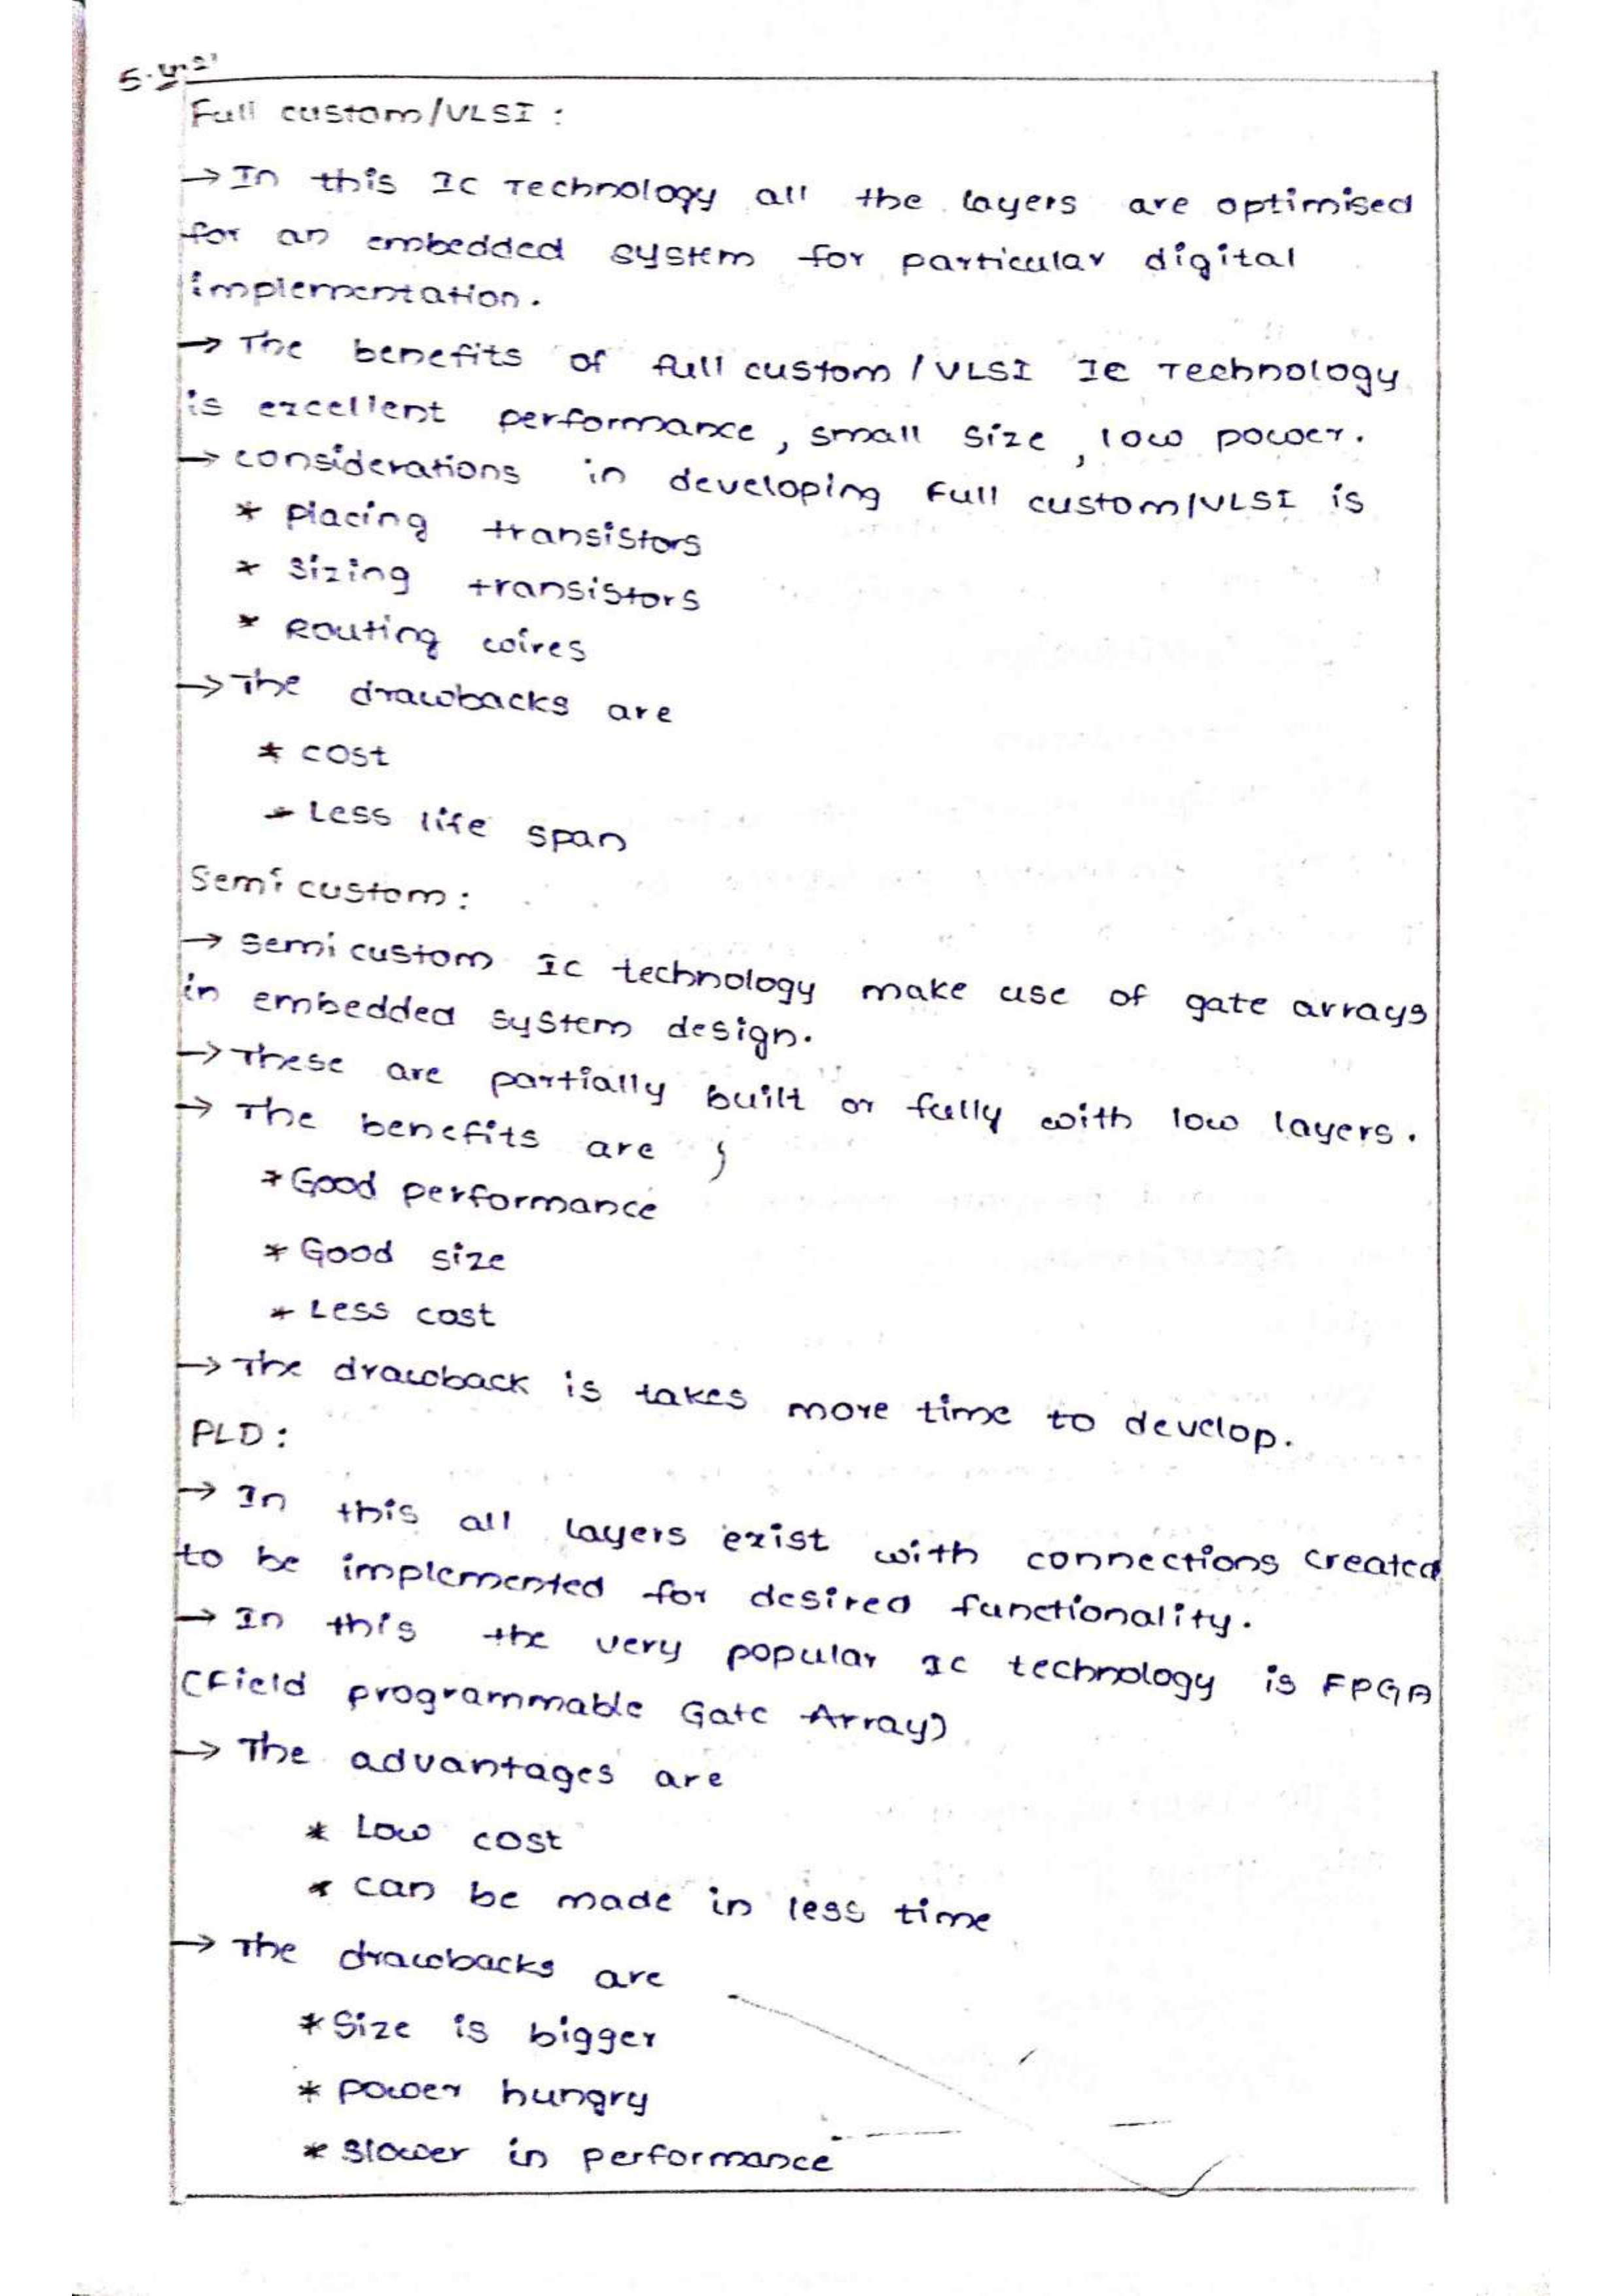 Full custom/VLSI :
→ In this IC Technology all the layers are optimised
for an embedded system for particular digital
implementation.
→ The benefits of full custom / VLSI IC Technology
is excellent performance, small size, low power.
→ considerations in developing Full custom/VLSI is
* placing transistors
* Sizing transistors
* Routing wires
→ The drawbacks are
* cost
* Less life span
Semi custom :
→ semi custom IC technology make use of gate arrays
in embedded system design.
→ These are partially built or fully with low layers.
→ The benefits are ;
* Good performance
* Good size
* Less cost
→ The drawback is takes more time to develop.
PLD :
→ In this all layers exist with connections created
to be implemented for desired functionality.
→ In this the very popular IC technology is FPGA
(Field programmable Gate Array)
→ The advantages are
* Low cost
* can be made in less time
→ The drawbacks are
* Size is bigger
* power hungry
* slower in performance